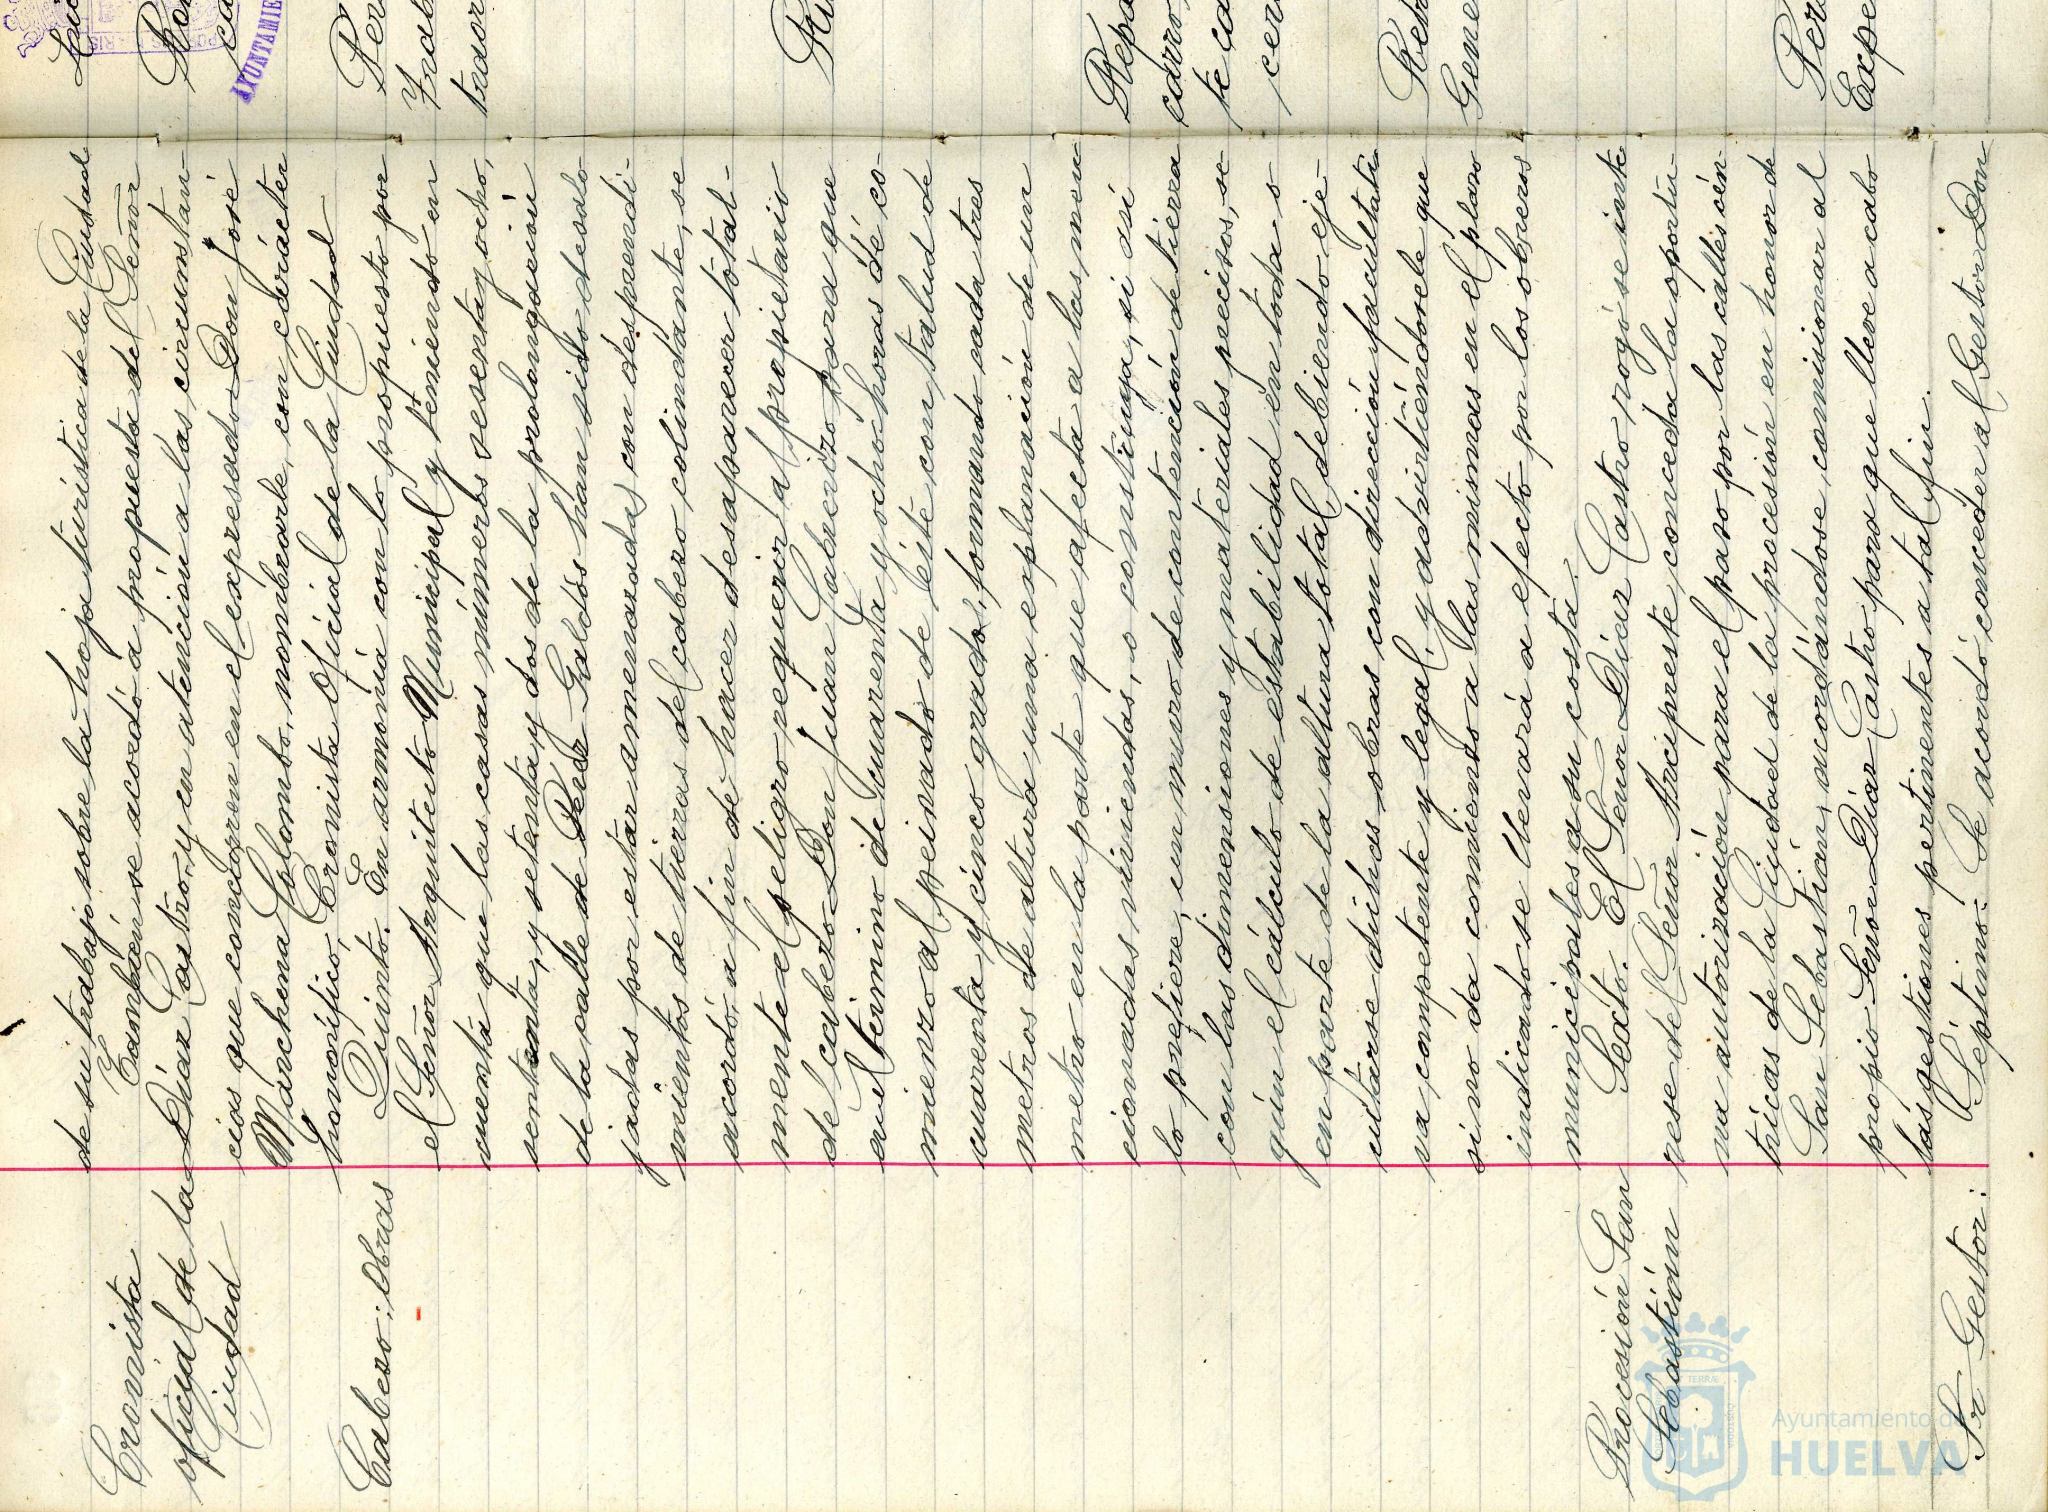 de su trabajo sobre la hoja turística de la Ciudad
Cronista
oficial de la
Ciudad
También se acordó a propuesta del Señor
Díaz Castro, y en atención a las circunstan-
cias que concurren en el expresado Don José
Marchena Colombo, nombrarle, con carácter
honorífico, Cronista Oficial de la Ciudad
Cabezo: Obras
Quinto. En armonía con lo propuesto por
el Señor Arquitecto Municipal y teniendo en
cuenta que las casas números sesenta y ocho,
sententa, y setenta y dos de la prolongación
de la calle de Perez Galdós han sido desalo-
jadas por estar amenazadas con desprendi-
mientos de tierras del cabezo colindante, se
acordó, a fin de hacer desaparecer total-
mente el peligro requerir al propietario
del cabezo Don Juan Cabecizo para que
en el término de cuarenta y ocho horas dé co-
mienzo al peinado de éste con talud de
cuarenta y cinco grados, formando cada tres
metros de altura una explanación de un
metro en la parte que afecta a las men-
cionadas viviendas, o construya, si así
lo prefiere, un muro de contención de tierra
con las dimensiones y materiales precisos, se-
gún el cálculo de estabilidad en toda o
en parte de la altura total, debiendo eje-
cutarse dichas obras con dirección facultati-
va competente y legal, y advirtiéndole que
si no da comienzo a las mismas en el plazo
indicado se llevará a efecto por los obreros
municipales a su costa.
Procesión San
Sebastián
Sexto. El Señor Díaz Castro rogó se inte-
rese del Señor Arcipreste conceda la oportu-
na autorización para el paso por las calles cén-
tricas de la Ciudad de la procesión en honor de
San Sebastián, acordándose, comisionar al
propio Señor Díaz Castro para que lleve a cabo
las gestiones pertinentes a tal fin.
Sr Gestor:
Séptimo: Se acordó conceder al Gestor Don
AYUNTAMIE
Per
Trab
trasr
Repa
carro
te ca
cer
Retr
Gene
Per
Expe
Ayuntamiento de
HUELVA